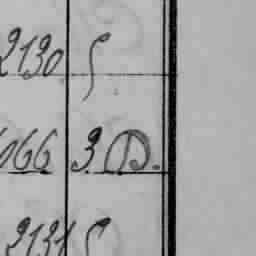 2130 S
6066 3 D.
2131 S